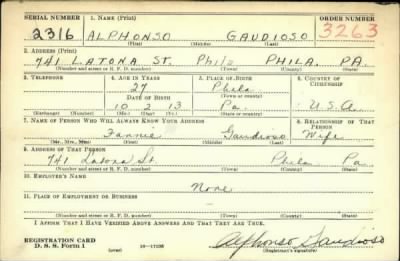 SERIAL NUMBER 1. NAME (Print) ORDER NUMBER
2316 ALPHONSO GAUDIOSO 3263
(First) (Middle) (Last)
2. ADDRESS (Print)
741 LATONA ST. Phila PHILA. PA.
(Number and street or R. F. D. number) (Town) (County) (State)
3. TELEPHONE 4. AGE IN YEARS 5. PLACE OF BIRTH 6. COUNTRY OF CITIZENSHIP
27 Phila
DATE OF BIRTH (Town or county)
10 2 13 Pa. U.S.A.
(Mo.) (Day) (Yr.) (State or country)
7. NAME OF PERSON WHO WILL ALWAYS KNOW YOUR ADDRESS 8. RELATIONSHIP OF THAT PERSON
Fannie Gaudioso Wife
(Mr., Mrs., Miss) (First) (Middle) (Last)
9. ADDRESS OF THAT PERSON
741 Latona St. Phila Pa
(Number and street or R. F. D. number) (Town) (County) (State)
10. EMPLOYER'S NAME
None
11. PLACE OF EMPLOYMENT OR BUSINESS
(Number and street or R. F. D. number) (Town) (County) (State)
I AFFIRM THAT I HAVE VERIFIED ABOVE ANSWERS AND THAT THEY ARE TRUE.
REGISTRATION CARD
D. S. S. Form 1 Alphonso Gaudioso
(Registrant's signature)